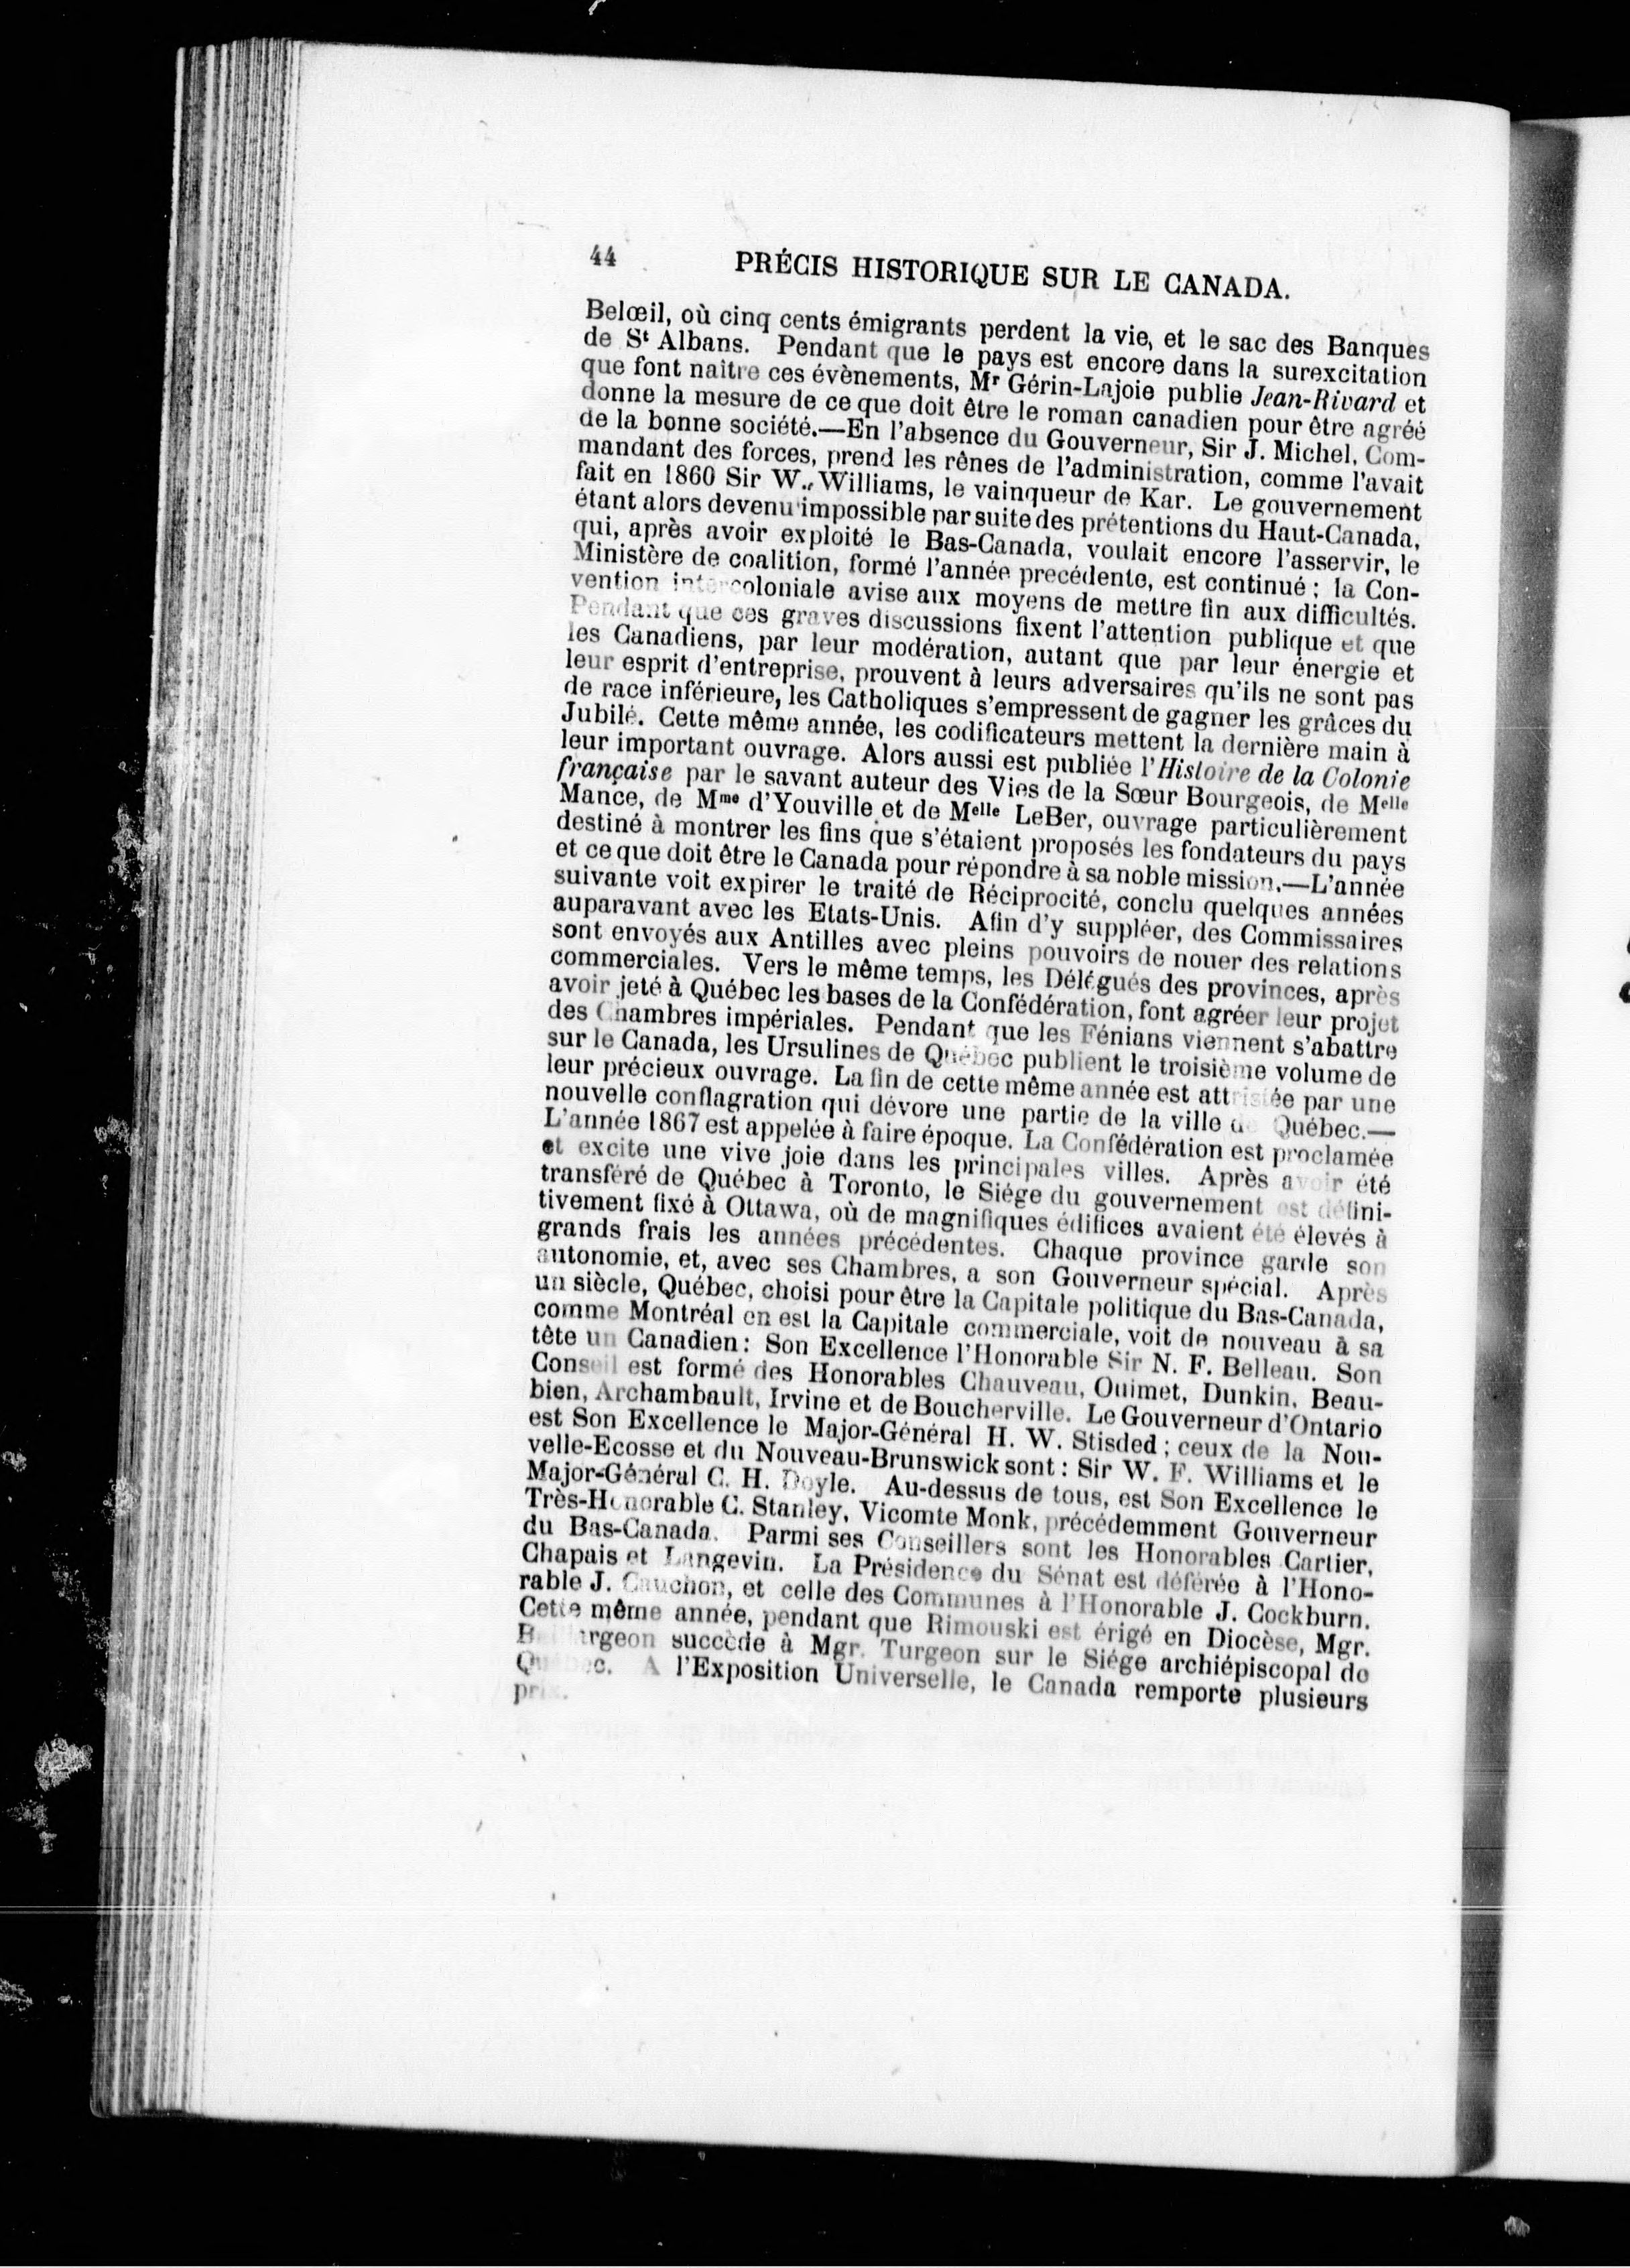 44 PRÉCIS HISTORIQUE SUR LE CANADA.
Belœil, où cinq cents émigrants perdent la vie, et le sac des Banques
de St Albans. Pendant que le pays est encore dans la surexcitation
que font naître ces évènements, Mr Gérin-Lajoie publie Jean-Rivard et
donne la mesure de ce que doit être le roman canadien pour être agréé
de la bonne société.—En l'absence du Gouverneur, Sir J. Michel, Com-
mandant des forces, prend les rênes de l'administration, comme l'avait
fait en 1860 Sir W. Williams, le vainqueur de Kar. Le gouvernement
étant alors devenu impossible par suite des prétentions du Haut-Canada,
qui, après avoir exploité le Bas-Canada, voulait encore l'asservir, le
Ministère de coalition, formé l'année precédente, est continué; la Con-
vention intercoloniale avise aux moyens de mettre fin aux difficultés.
Pendant que ces graves discussions fixent l'attention publique et que
les Canadiens, par leur modération, autant que par leur énergie et
leur esprit d'entreprise, prouvent à leurs adversaires qu'ils ne sont pas
de race inférieure, les Catholiques s'empressent de gagner les grâces du
Jubilé. Cette même année, les codificateurs mettent la dernière main à
leur important ouvrage. Alors aussi est publiée l'Histoire de la Colonie
française par le savant auteur des Vies de la Sœur Bourgeois, de Melle
Mance, de Mme d'Youville et de Melle LeBer, ouvrage particulièrement
destiné à montrer les fins que s'étaient proposés les fondateurs du pays
et ce que doit être le Canada pour répondre à sa noble mission.—L'année
suivante voit expirer le traité de Réciprocité, conclu quelques années
auparavant avec les Etats-Unis. Afin d'y suppléer, des Commissaires
sont envoyés aux Antilles avec pleins pouvoirs de nouer des relations
commerciales. Vers le même temps, les Délégués des provinces, après
avoir jeté à Québec les bases de la Confédération, font agréer leur projet
des Chambres impériales. Pendant que les Fénians viennent s'abattre
sur le Canada, les Ursulines de Québec publient le troisième volume de
leur précieux ouvrage. La fin de cette même année est attristée par une
nouvelle conflagration qui dévore une partie de la ville de Québec.—
L'année 1867 est appelée à faire époque. La Confédération est proclamée
et excite une vive joie dans les principales villes. Après avoir été
transféré de Québec à Toronto, le Siége du gouvernement est défini-
tivement fixé à Ottawa, où de magnifiques édifices avaient été élevés à
grands frais les années précédentes. Chaque province garde son
autonomie, et, avec ses Chambres, a son Gouverneur spécial. Après
un siècle, Québec, choisi pour être la Capitale politique du Bas-Canada,
comme Montréal en est la Capitale commerciale, voit de nouveau à sa
tête un Canadien: Son Excellence l'Honorable Sir N. F. Belleau. Son
Conseil est formé des Honorables Chauveau, Ouimet, Dunkin, Beau-
bien, Archambault, Irvine et de Boucherville. Le Gouverneur d'Ontario
est Son Excellence le Major-Général H. W. Stisded; ceux de la Nou-
velle-Ecosse et du Nouveau-Brunswick sont: Sir W. F. Williams et le
Major-Général C. H. Doyle. Au-dessus de tous, est Son Excellence le
Très-Honorable C. Stanley, Vicomte Monk, précédemment Gouverneur
du Bas-Canada. Parmi ses Conseillers sont les Honorables Cartier,
Chapais et Langevin. La Présidence du Sénat est déférée à l'Hono-
rable J. Cauchon, et celle des Communes à l'Honorable J. Cockburn.
Cette même année, pendant que Rimouski est érigé en Diocèse, Mgr.
Baillargeon succède à Mgr. Turgeon sur le Siége archiépiscopal de
Québec. A l'Exposition Universelle, le Canada remporte plusieurs
prix.